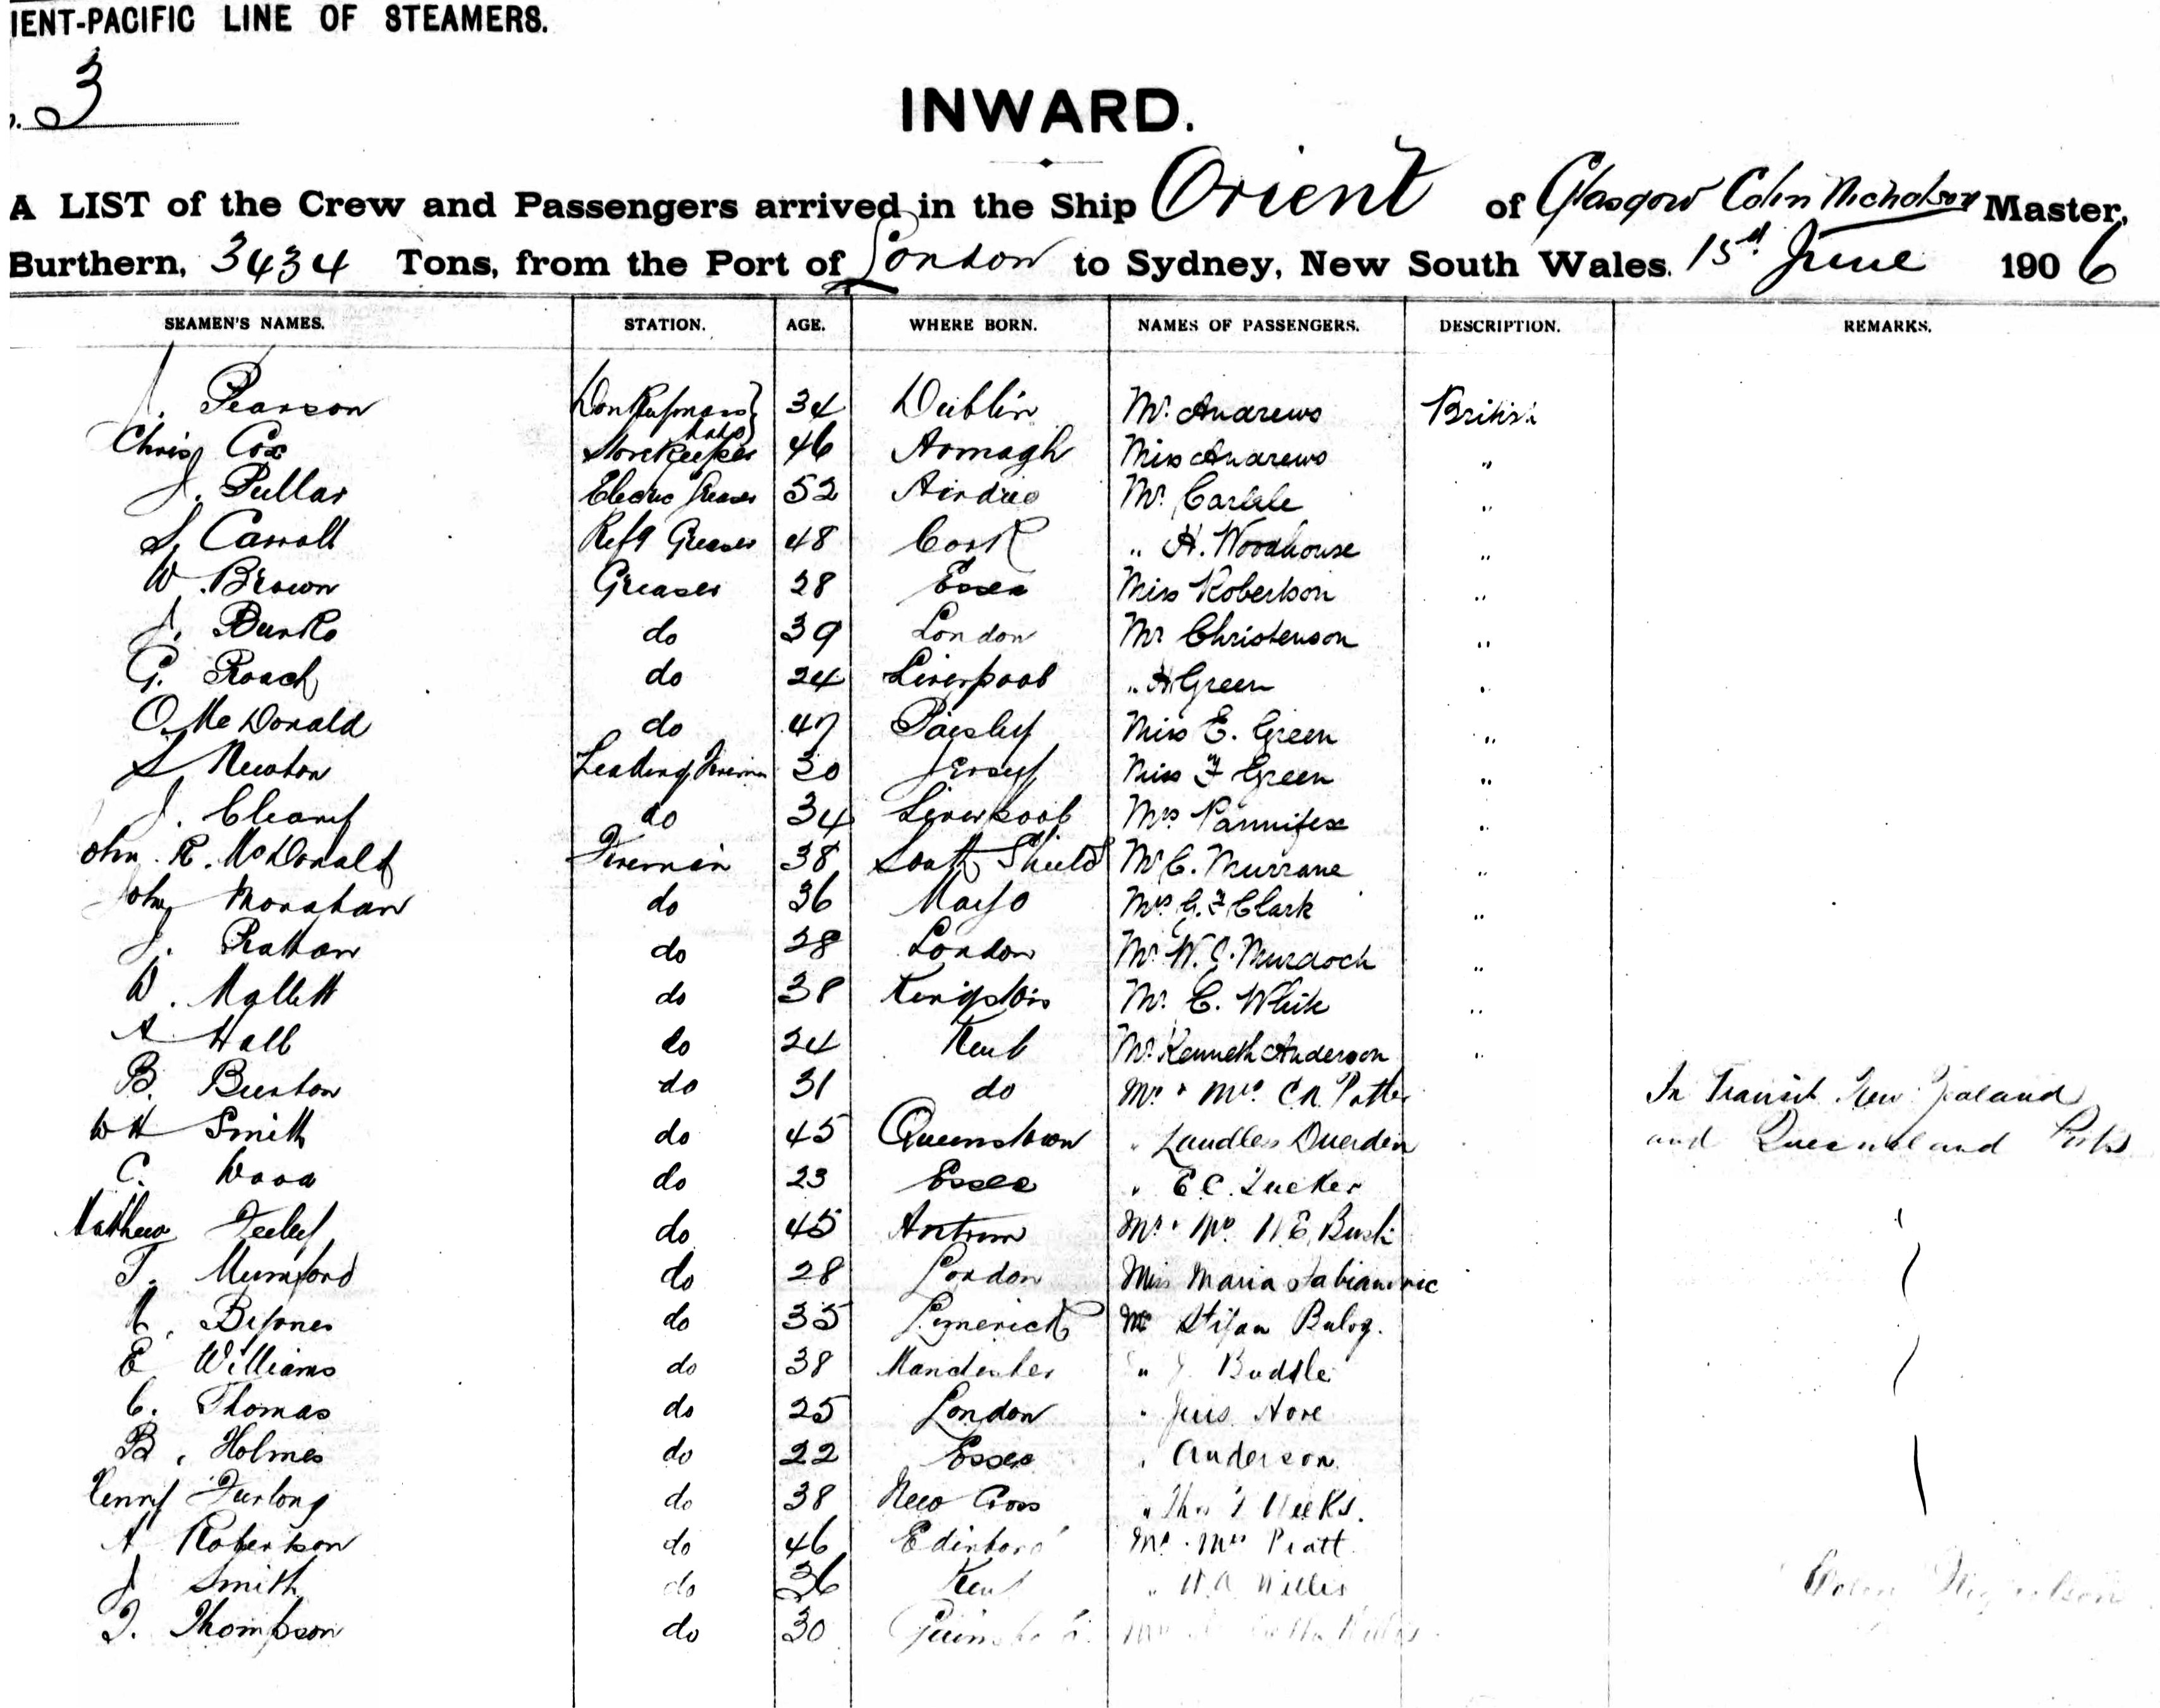 IENT-PACIFIC LINE OF STEAMERS.
3
INWARD.
A LIST of the Crew and Passengers arrived in the Ship Orient of Glasgow Colin Nicholson Master,
Burthern, 3434 Tons, from the Port of London to Sydney, New South Wales. 15th June 1906
SEAMEN'S NAMES. STATION. AGE. WHERE BORN. NAMES OF PASSENGERS. DESCRIPTION. REMARKS.
J. Pearson 34 Dublin Mr. Andrews British
Chris Cox Storekeeper 46 Armagh Miss Andrews "
J. Pullar Electric Greaser 52 Airdrie Mr. Carlile "
S. Carroll Refg Greaser 48 Cork " H. Woodhouse "
W. Brown Greaser 28 Essex Miss Robertson "
J. Burke do 39 London Mr Christenson "
G. Roach do 24 Liverpool " H Green "
O. McDonald do 47 Paisley Miss E. Green "
S Newton Leading Fireman 30 Jersey Miss F Green "
J. Cleary do 34 Liverpool Mrs Pannifex "
ohn R. McDonald Fireman 38 South Shields Mr C. Murrane "
John Monahan do 36 Mayo Mrs G. F Clark "
J. do 28 London Mr. W. J. Murdoch "
W. Mallett do 38 Kingston Mr. C. White "
A Hall do 24 Kent Mr. Kenneth Anderson "
B. Burton do 31 do Mr. & Mrs. C.R. Potter In Transit New Zealand
WH Smith do 45 Queenstown " Duerden and Queensland Ports
C. Wood do 23 Essex " E C. Tucker
Mathew Feeley do 45 Antrim Mr. & Mrs. W E Bush
T. Mumford do 28 London Miss Maria
35 Limerick Mr Stifan Balog.
E Williams do 38 Manchester " J. Buddle
C. Thomas do 25 London " Hore
B. Holmes do 22 Essex " Anderson
Henry Furlong do 38 New Cross " Weeks.
A Robertson do 46 Edinboro' Mr. & Mrs Pratt
J Smith do 36 Kent " W. A Willis
T. Thompson do 30
Colin Nicholson